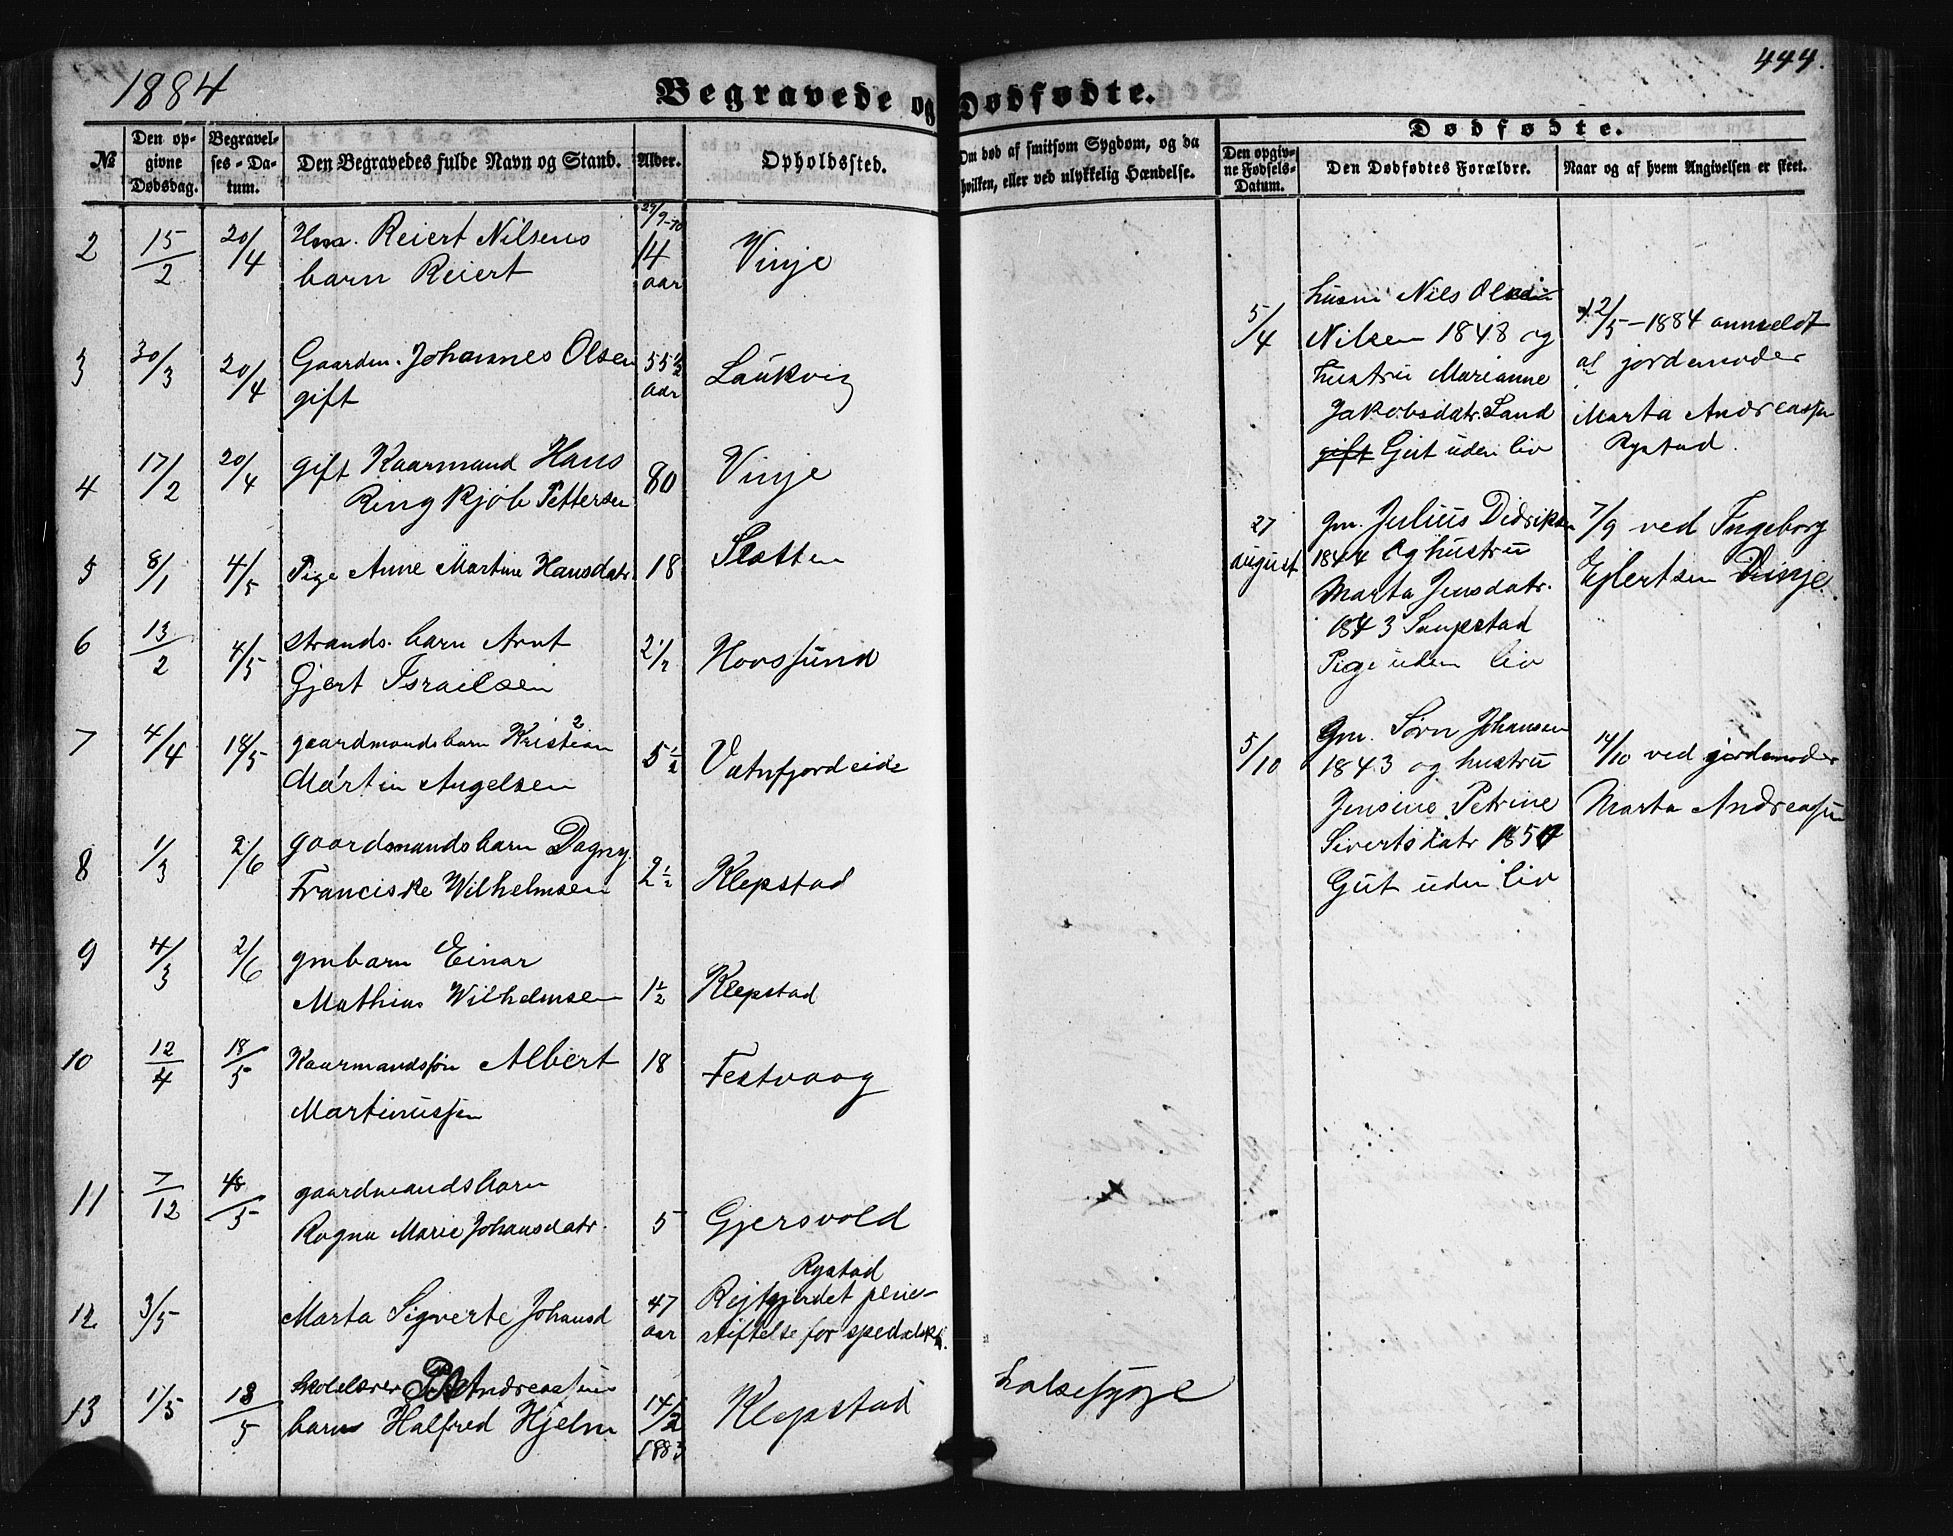 1884
444.
Begravede og Dødfødte.
№
Den op-
givne
Dødsdag.
Begravel-
ses-Da-
tum.
Den Begravedes fulde Navn og Stand.
Alder.
Opholdssted.
Om død af smitsom Sygdom, og da
hvilken, eller ved ulykkelig Hændelse.
Dødfødte.
Den opgiv-
ne Fødsels-
Datum.
Den Dødfødtes Forældre.
Naar og af hvem Angivelsen er skeet.
2 15/2 20/4 Hm. Reiert Nilsens
barn Reiert
14
aar
Vinje
3 30/3 20/4 Gaardm. Johannes Olsen
gift
55 1/2
aar
Laukvig
4 17/2 20/4 gift Kaarmand Hans
Ringkjöb Pettersen
80 Vinje
5 8/1 4/5 Pige Anne Martine Hansdatr. 18 Slotten
6 13/2 4/5 strands. barn Arnt
Gjert Israelsen
2 1/2 Hovsund
7 4/4 18/5 gaardmandsbarn Kristian
Martin Angelsen
5 1/2 Vatnfjordeide
8 1/3 2/6 gaardmandsbarn Dagny
Franciske Wilhelmsen
2 1/2 Klepstad
9 4/3 2/6 gmbarn Einar
Mathias Wilhelmsen
1 1/2 Klepstad
10 12/4 18/5 Kaarmandssön Albert
Martinussen
18 Festvaag
11 7/12 18/5 gaardmandsbarn
Ragna Marie Johansdatr.
5 Gjersvold
12 3/5 Marta Sigverte Johansd
47
aar
Rystad
Rejtgjerdet pleie-
stiftelse for spedalsk.
13 1/5 18/5 skolelærer Andreassens
barn Halfred Hjelm
14/2
1883
Klepstad
halsesyge
5/4
husm Nils
Nilsen 1848 og
hustru Marianne
Jakobsdatr. Sand
gift Gut uden liv
12/5-1884 anmeldt
af jordemoder
Marta Andreassen
Rystad.
27
august
gm. Julius Didriksen
1844 og hustru
Marta Jensdatr.
1843 Saupstad
Pige uden liv
7/9 ved Ingeborg
Ejlertsen Vinje.
5/10
Gm. Sörn Johansen
1843 og hustru
Jensine Petrine
Sivertsdatr
Gut uden liv
14/10 ved jordemoder
Marta Andreassen